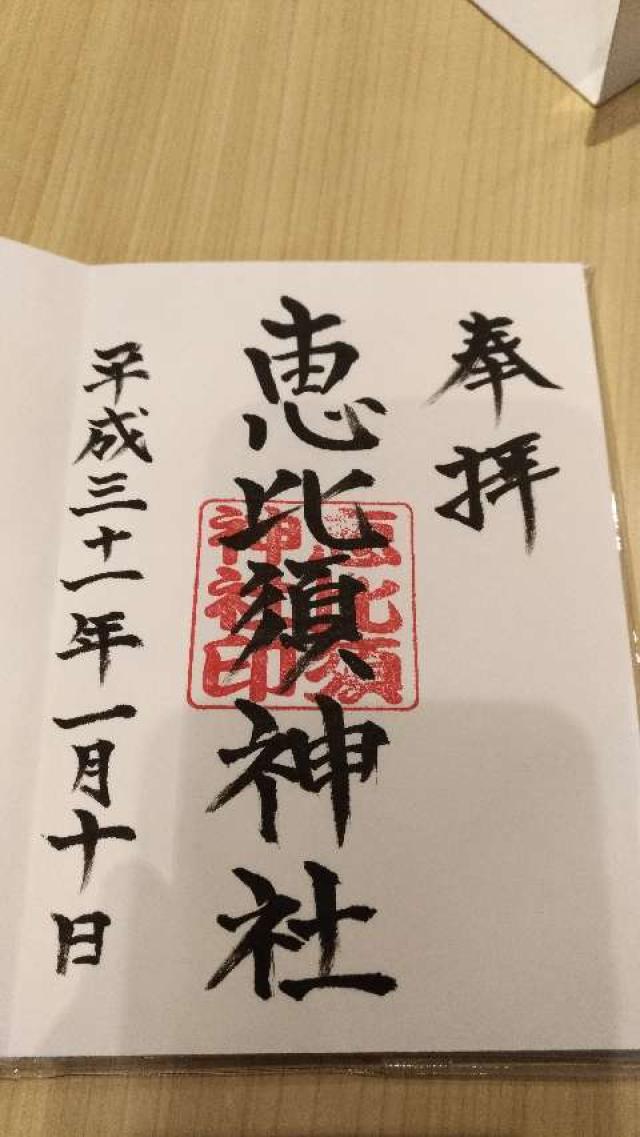 奉拝
恵比須神社
恵比須
神社印
平成三十一年一月十日